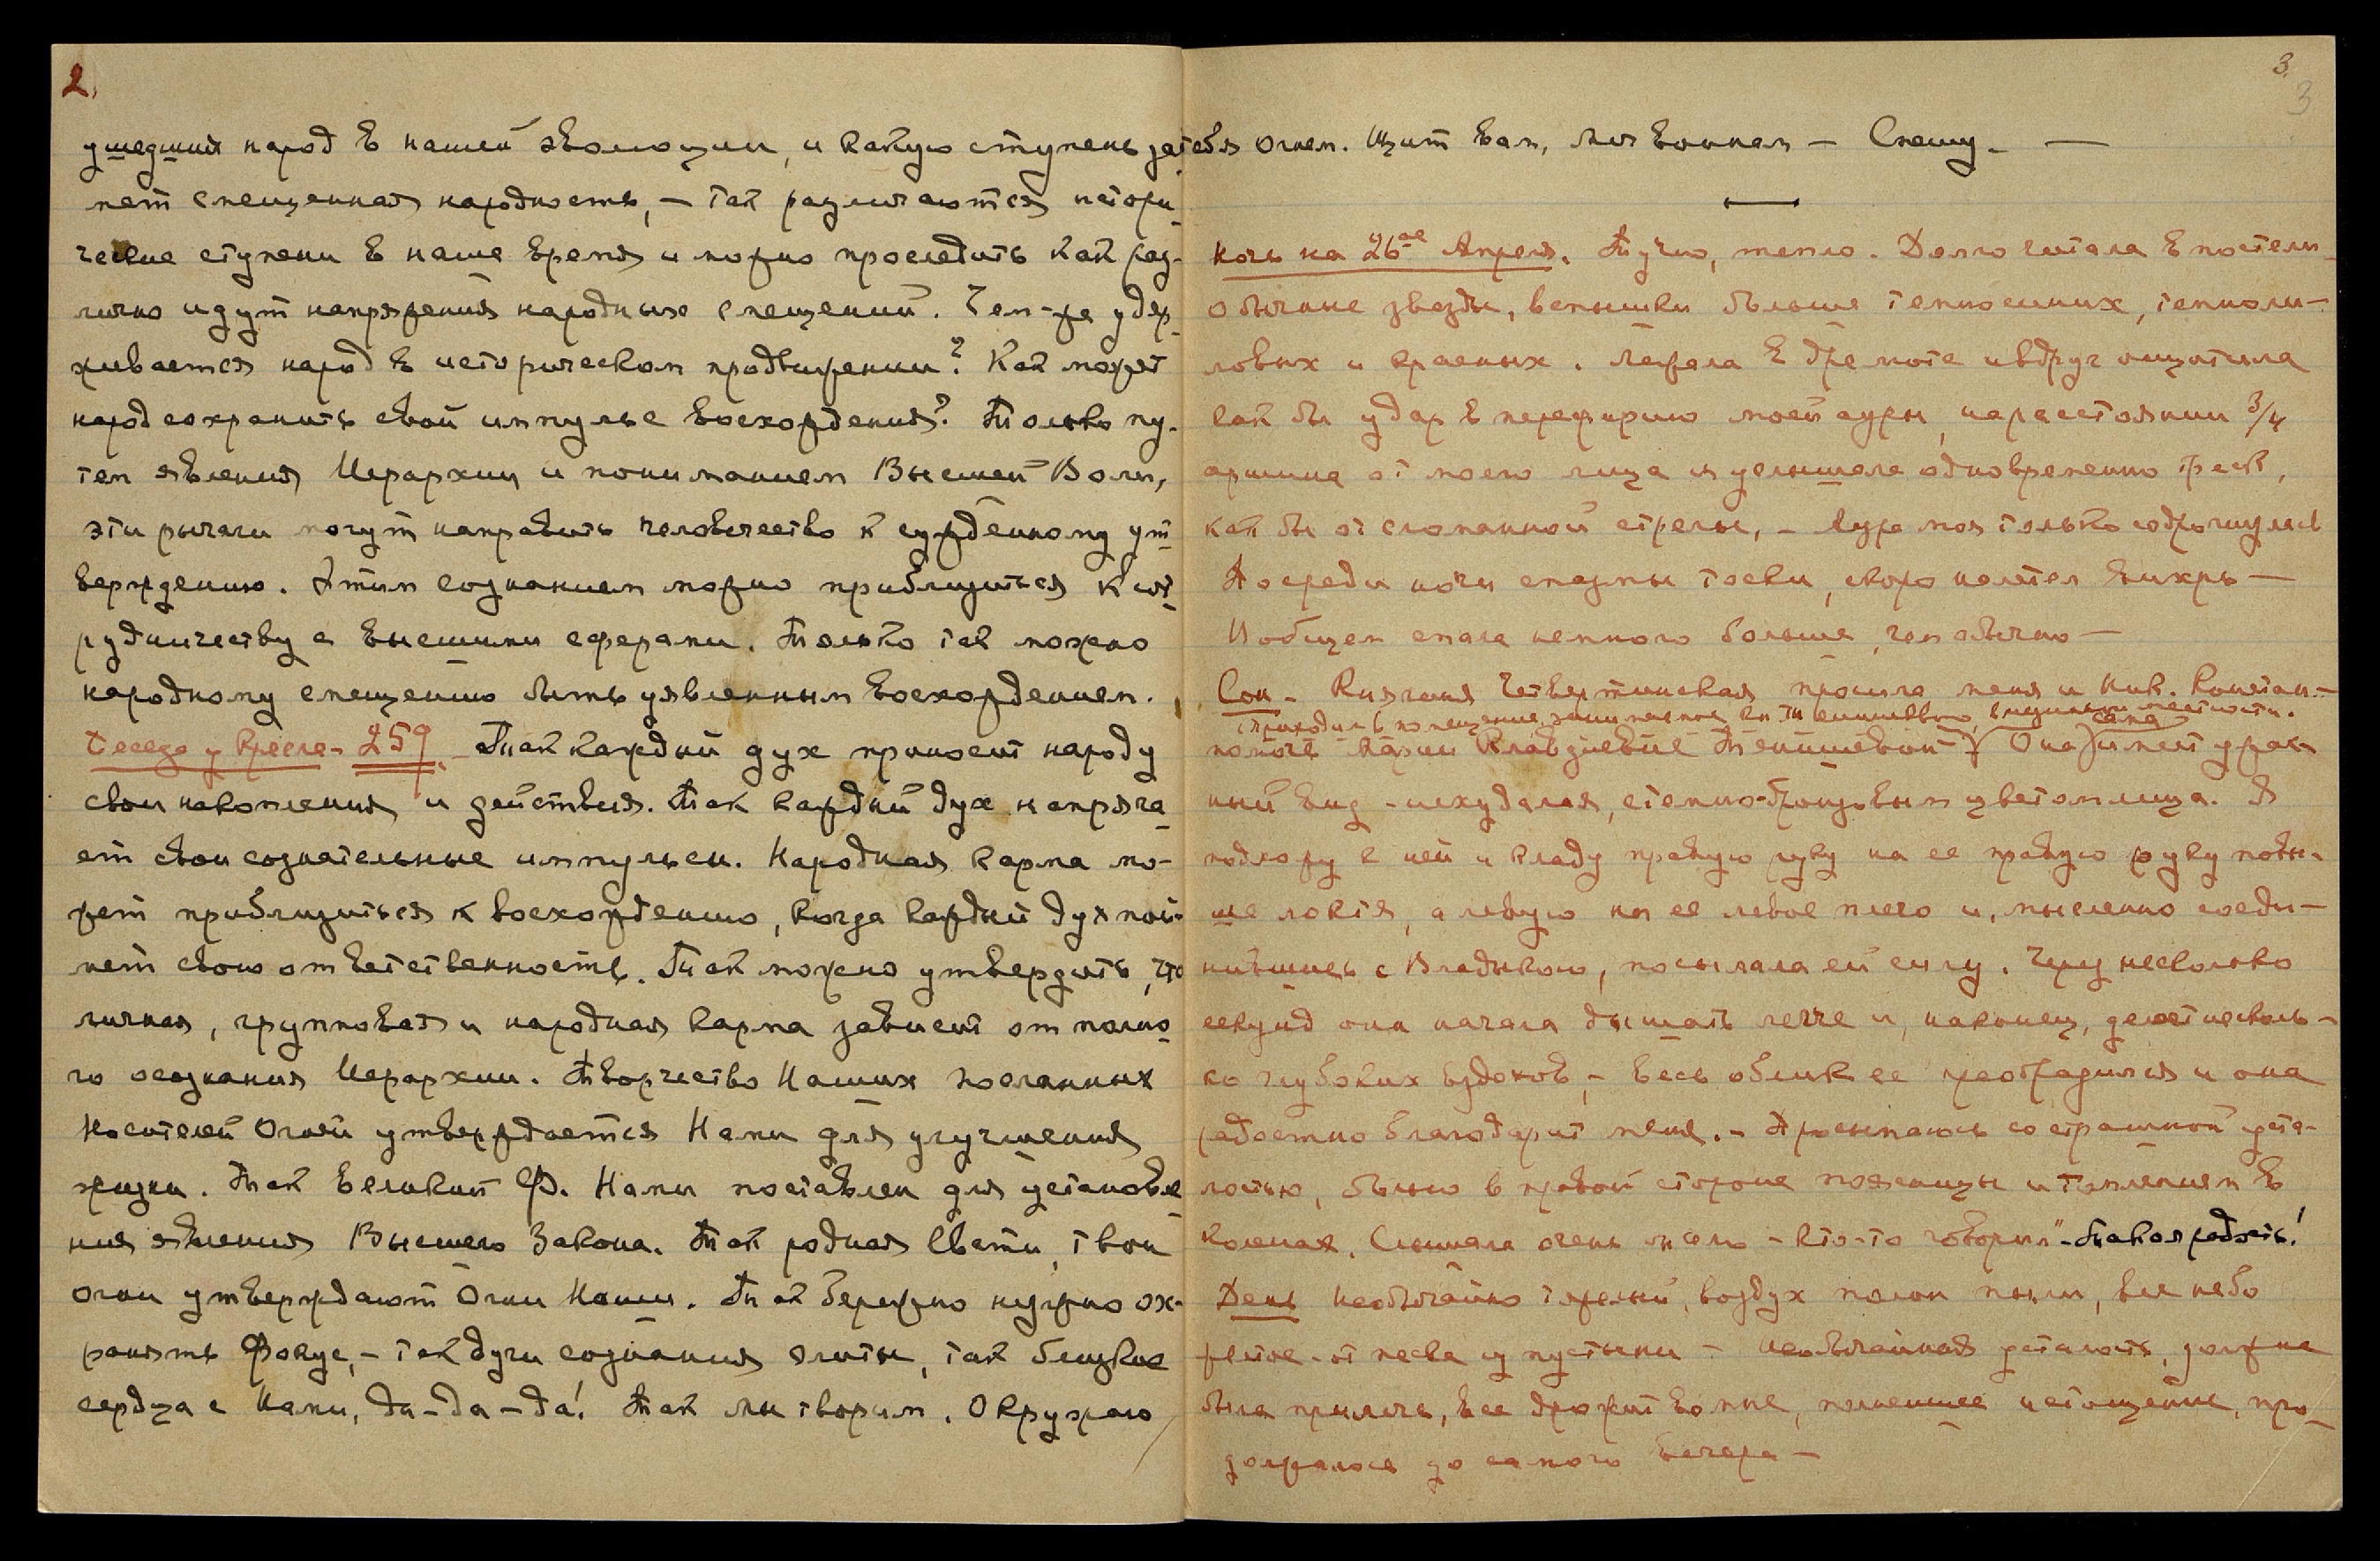 2.
ушедший народ в нашей эволюции, и какую ступень зай-
мет смещенная народность, – так различаются истори-
ческие ступени в наше время и можно проследить как раз-
лично идут напряжения народных смещений. Чем-же удер-
живается народ в историческом продвижении? Как может
народ сохранить свой импульс восхождения? Только пу-
тем явления Иерархии и пониманием Высшей Воли,
эти рычаги могут направить человечество к сужденному ут-
верждению. Этим сознанием можно приблизиться к сот-
рудничеству с высшими сферами. Только так можно
народному смещению быть уявленным восхождением.
Беседа у Кресла – 259. – Так каждый дух приносит народу
свои накопления и действия. Так каждый дух напряга-
ет свои сознательные импульсы. Народная карма мо-
жет приблизиться к восхождению, когда каждый дух пой-
мет свою ответственность. Так можно утвердить, что
личная, групповая и народная карма зависит от полно-
го осознания Иерархии. Творчество Наших посланных
Носителей Огней утверждается Нами для улучшения
жизни. Так великий Ф. Нами поставлен для установле-
ния явления Высшего Закона. Так родная Свати, твои
огни утверждают Огни Наши. Так бережно нужно ох-
ранять Фокус, – так духи сознания слиты, так близкие
сердца с Нами, да – да – да! Так мы творим. Окружаю
3.
3
тебя огнем. Щит вам, Мои воинам – Спешу. –
Ночь на 26ое Апреля. Тучно, тепло. Долго читала в постели
обычные звезды, вспышки больше темносиних, темноли-
ловых и красных. Лежала в дремоте и вдруг ощутила
как бы удар в периферию моей ауры, на расстоянии 3/4
аршина от моего лица и услышала одновременно треск,
как бы от сломанной стрелы, – Аура моя только содрогнулась
Посреди ночи спазмы тоски, скоро налетел вихрь –
В общем спала немного больше, чем обычно –
Сон – Княгиня Четвертинская просила меня и Ник. Констан. –
(приходили в помещение, занимаемое кн. Тенишевою, в
помочь Марии Клавдиевне Тенишевой –) Она (сама) имеет ужас-
ный вид – исхудалая, с темно-бронзовым цветом лица. Я
подхожу к ней и кладу правую руку на ее правую руку повы-
ше локтя, а левую на ее левое плечо и, мысленно соеди-
нившись с Владыкою, посылала ей силу. Через несколько
секунд она начала дышать легче и, наконец, делает несколь-
ко глубоких вздохов, – весь облик ее преобразился и она
радостно благодарит меня. – Просыпаюсь со страшной уста-
лостью, болью в правой стороне поясницы и томлением в
коленах. Слышала очень ясно – кто-то говорил – "Такая радость!
День необычайно тяжелый, воздух полон пыли, все небо
желтое – от песка из пустыни – необычайная усталость, должна
была прилечь, все дрожит во мне, полнейшее истощение, про-
должалось до самого вечера –